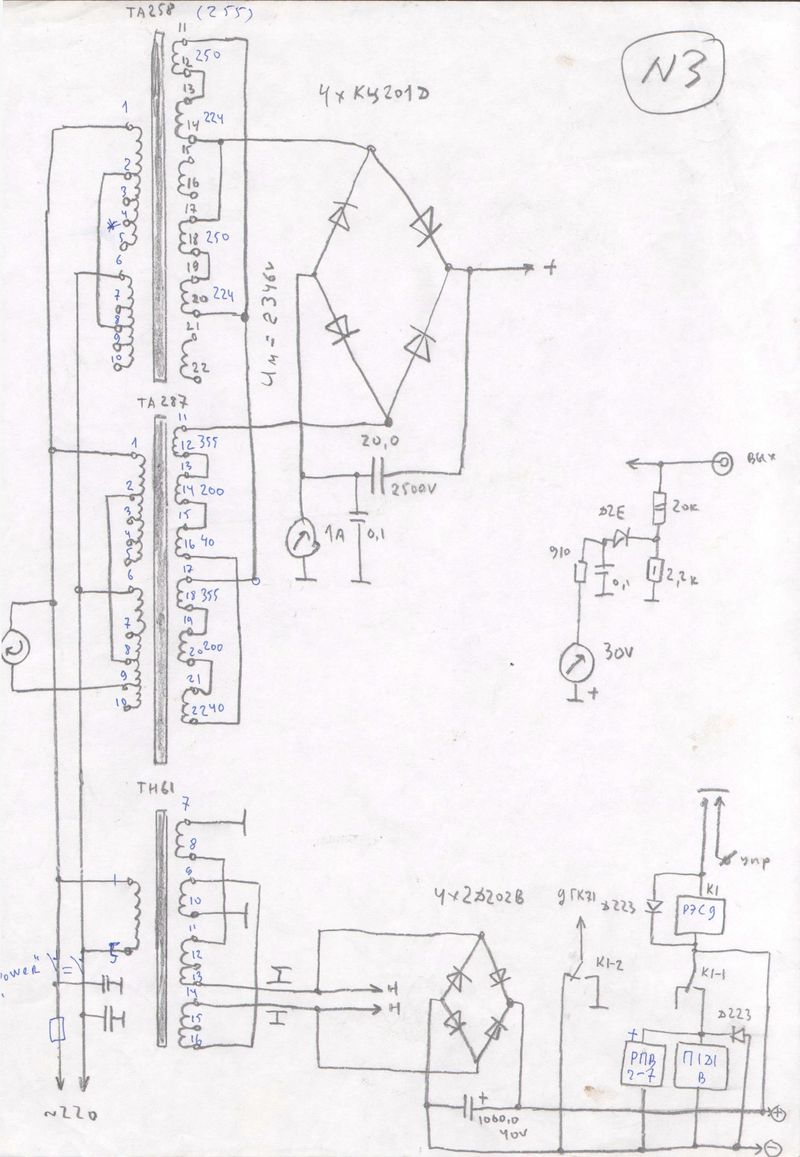 TA258 (255)
N3
11
12
250
13
14
224
15
16
17
18
250
19
20
224
21
22
1
2
3
4
*
5
6
7
8
9
10
4хКЦ201Д
+
Uм = 2346v
TA287
11
12
355
13
14
200
15
16
40
17
18
355
19
20
200
21
22
40
1
2
3
4
5
6
7
8
9
10
20,0
2500V
1A
0,1
ВЫХ
20к
Д2Е
910
0,1
2,2к
30V
+
ТН61
7
8
9
10
11
12
13
14
15
16
1
5
I
I
Н
Н
4х2Д202В
+
1000,0
40V
К1-2
Д223
К1
РЭС9
упр
К1-1
Д223
+
РПВ
2-7
П1Д1
В
+
-
~220